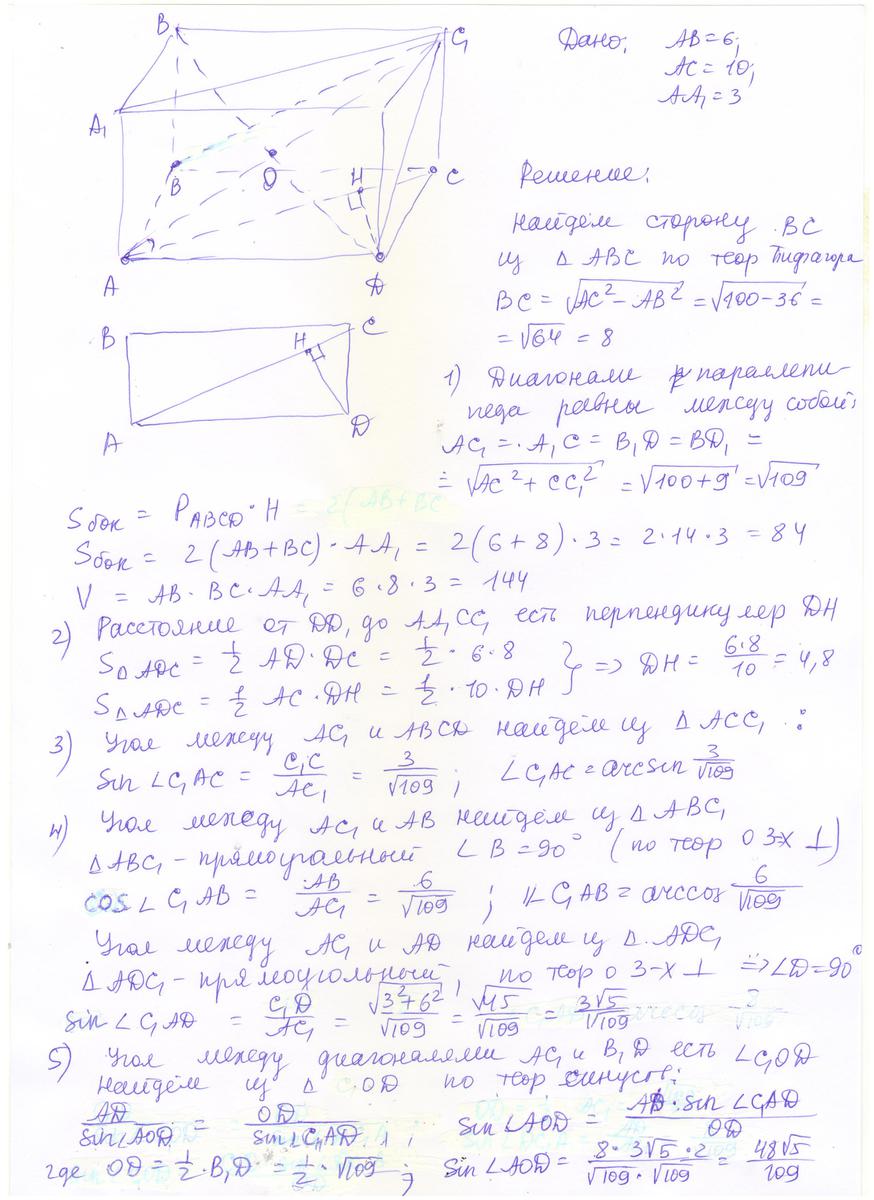 B
C₁
A₁
B
O
H
C
A
D
Дано: AB = 6;
AC = 10;
AA₁ = 3
Решение:
Найдём сторону BC
из Δ ABC по теор Пифагора
BC = √(AC² − AB²) = √(100−36) =
= √64 = 8
B
C
H
A
D
1) Диагонали параллепи-
педа равны между собой:
AC₁ = A₁C = B₁D = BD₁ =
= √(AC² + CC₁²) = √(100+9) = √109
Sбок = P_ABCD · H = 2(AB+BC
Sбок = 2(AB+BC) · AA₁ = 2(6+8) · 3 = 2·14·3 = 84
V = AB · BC · AA₁ = 6·8·3 = 144
2) Расстояние от DD₁ до AA₁CC₁ есть перпендикуляр DH
S_ΔADC = 1/2 AD · DC = 1/2 · 6·8 } => DH = 6·8/10 = 4,8
S_ΔADC = 1/2 AC · DH = 1/2 · 10 · DH
3) Угол между AC₁ и ABCD найдём из Δ ACC₁:
Sin ∠C₁AC = C₁C/AC₁ = 3/√109; ∠C₁AC = arcsin 3/√109
4) Угол между AC₁ и AB найдём из Δ ABC₁
Δ ABC₁ – прямоугольный ∠B = 90° (по теор о 3-х ⊥)
cos ∠C₁AB = AB/AC₁ = 6/√109; ∠C₁AB = arccos 6/√109
Угол между AC₁ и AD найдём из Δ ADC₁
Δ ADC₁ – прямоугольный, по теор о 3-х ⊥ => ∠D = 90°
Sin ∠C₁AD = C₁D/AC₁ = √(3²+6²)/√109 = √45/√109 = 3√5/√109
5) Угол между диагоналями AC₁ и B₁D есть ∠C₁OD
найдём из Δ C₁OD по теор синусов:
AD/sin∠AOD = OD/sin∠C₁AD; sin∠AOD = AD · sin∠C₁AD/OD
где OD = 1/2 · B₁D = 1/2 · √109; sin∠AOD = 8·3√5·2/√109·√109 = 48√5/109